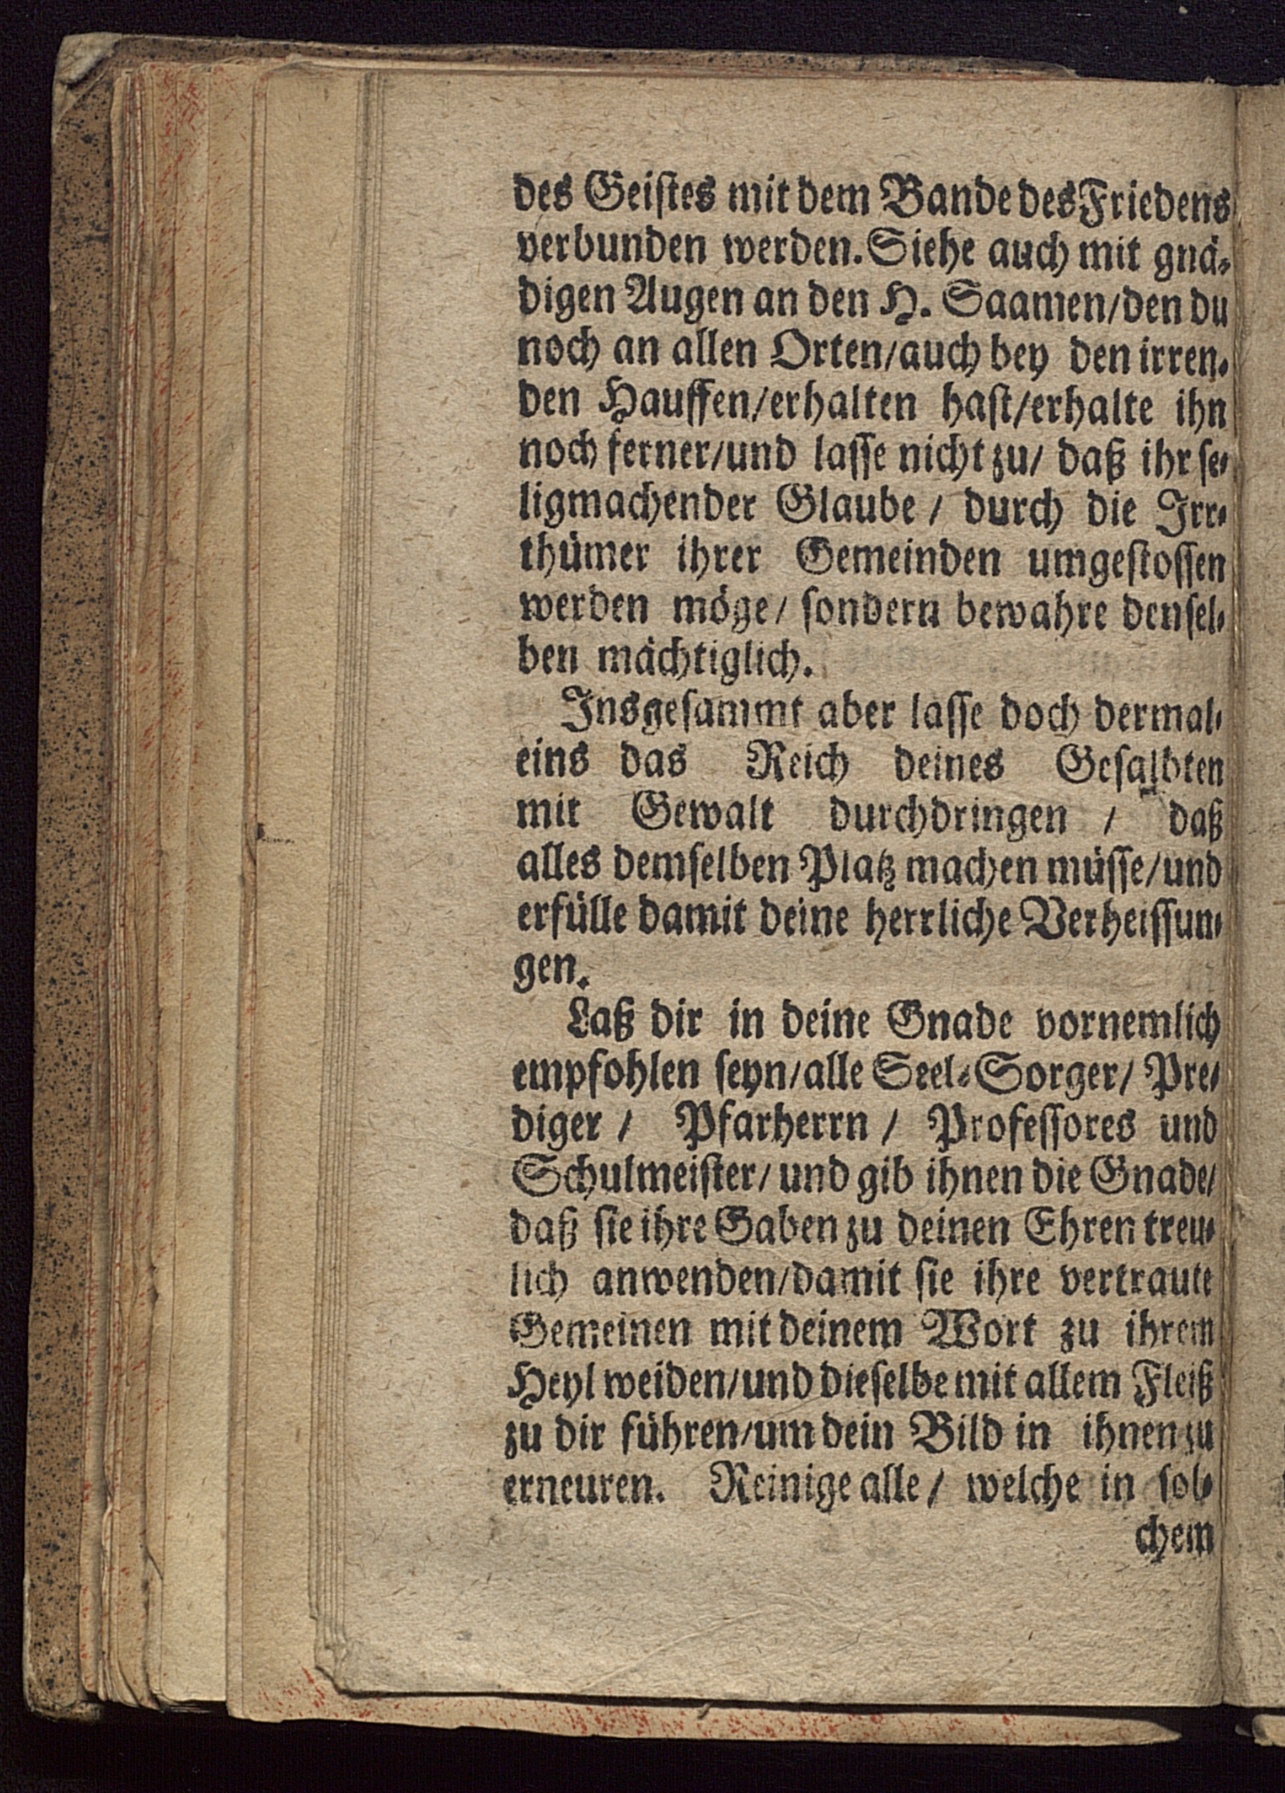 des Geistes mit dem Bande des Friedens
verbunden werden. Siehe auch mit gnä-
digen Augen an den H. Saamen/den du
noch an allen Orten/auch bey den irren-
den Hauffen/erhalten hast/erhalte ihn
noch ferner/und lasse nicht zu/ daß ihr se-
ligmachender Glaube / durch die Irr-
thümer ihrer Gemeinden umgestossen
werden möge/ sondern bewahre densel-
ben mächtiglich.
Insgesammt aber lasse doch dermal-
eins das Reich deines Gesalbten
mit Gewalt durchdringen / daß
alles demselben Platz machen müsse/und
erfülle damit deine herrliche Verheissun-
gen.
Laß dir in deine Gnade vornemlich
empfohlen seyn/alle Seel-Sorger/ Pre-
diger / Pfarherrn / Professores und
Schulmeister/ und gib ihnen die Gnade/
daß sie ihre Gaben zu deinen Ehren treu-
lich anwenden/damit sie ihre vertraute
Gemeinen mit deinem Wort zu ihrem
Heyl weiden/und dieselbe mit allem Fleiß
zu dir führen/um dein Bild in ihnen zu
erneuren. Reinige alle / welche in sol-
chem